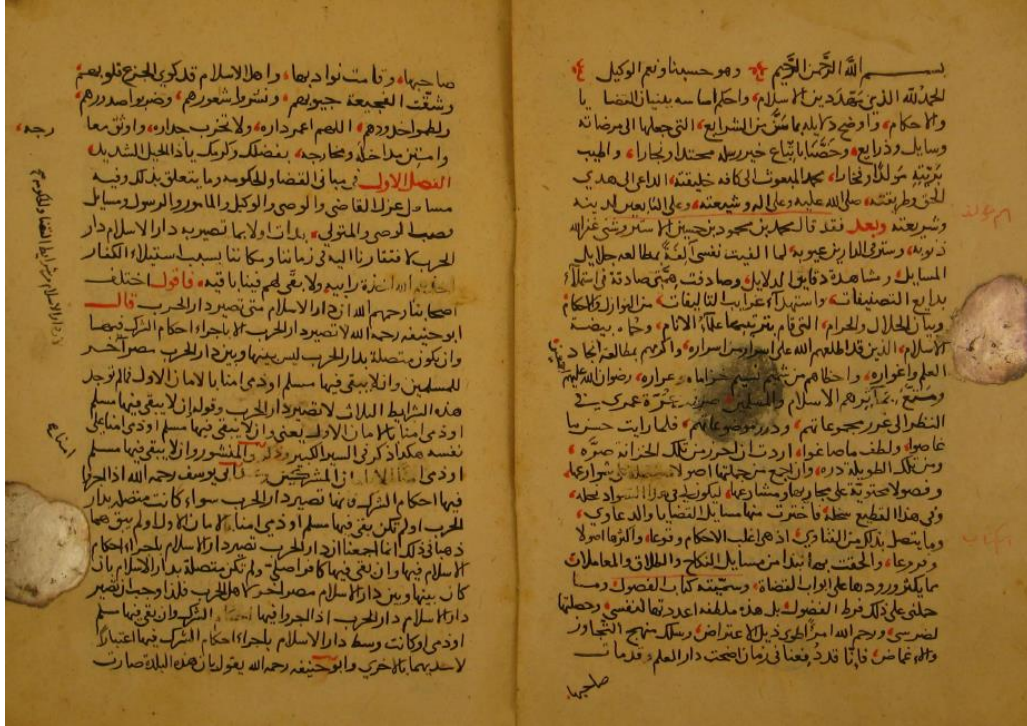 بسم الله الرحمن الرحيم وهو حسبنا ونعم الوكيل
الحمد لله الذي مهد دين الاسلام، واحكم اساسه ببنيان القضايا
والاحكام، واوضح دلايله بما سن من الشرايع، التي جعلها الى مرضاته
وسايل وذرايع، وخصنا باتباع خير رسله محتدا ونجارا، واطيب
بريته مولدا وفخارا، محمد المبعوث الى كافة خليقته، الداعى الى هدى
الحق وطريقته، صلى الله عليه وعلى اله وشيعته، وعلى التابعين لدينه
وشريعته وبعد فقد قال محمد بن محمود بن حسين الاستروشنى غفر الله
ذنوبه، وستر فى الدارين عيوبه، لما الفيت نفسى بمطالعه جلايل
المسايل، ومشاهدة دقايق الدلايل، وصادفت همتى صادقة فى
بدايع التصنيفات، غرايب التاليفات، من النوازل والاحكام
وبيان الحلال والحرام، التى قام بترتيبها علماء الانام، وحماه بيضة
الاسلام، الذين قد اطلعهم الله على اسراره، واكرمهم بمطالعة
العلم واغواره، من نسيم وعراره، رضوان الله عليهم
الاسلام والمسلمين عمرى فى
النظر الى غرر مجموعاتهم، ودرر موضوعاتهم، فلما رايت حسن ما
غاصوا، ولطف ما صاغوا، اردت ان من تلك الخزانه صره،
ومن تلك الطويله دره، وان اجمع من جملتها اصولا على شوارعها،
وفصولا محتوية على مجاريها ومشارعها، ليكون لى
وفى هذا القطيع سخلة، فاخترت منها مسايل القضايا والدعاوى،
وما يتصل بذلك من الفتاوى، اذ هى اغلب الاحكام وقوعا، واكثرها اصولا
وفروعا، والحقت بها نبذا من مسايل النكاح والطلاق والمعاملات
مما يكثر ورودها على ابواب القضاة، وسميته كتاب الفصول، وما
حملنى على ذلك فرط الفضول، بل هذه اعددتها لنفسى، وحصلتها
ورحم الله امرأ ذيل الاعتراض، وسلك منهج التجاوز
والاغماض، فانا قد دفعنا فى زمان اضحت دار العلم، وقد مات
صاحبها
صاحبها، وقامت نوادبها، واهل الاسلام قد كوى الجزع قلوبهم،
وشقت الفجيعة جيوبهم، ونشروا شعورهم، وضربوا صدورهم،
ولطموا خدودهم، اللهم اعمر داره، ولا تخرب جداره، واوثق معا
وامتن مداخله ومخارجه، بفضلك وكرمك ياذا الحبل الشديد،
رجه،
الفصل الاول فى القضا والحكومه وما يتعلق بذلك وفيه
مسايل عزل القاضى والوصى والوكيل والمامور والرسول ومسايل
نصب الوصى والمتولى، بدات اولا بما تصير به دار الاسلام دار
الحرب لافتقارنا اليه فى زماننا ومكاننا بسبب استيلاء الكفار
ولا بقى لهم فينا باقيه، فاقول اختلف
اصحابنا رحمهم الله ان دار الاسلام متى تصير دار الحرب قال
ابو حنيفه رحمه الله لا تصير دار الحرب الا باجراء احكام الشرك فيها
وان يكون متصلة بدار الحرب ليس بينها وبين دار الحرب مصر اخر
للمسلمين وان لا يبقى فيها مسلم او ذمى امنا بالامان الاول فما لم توجد
هذه الشرايط الثلاث لا تصير دار الحرب وقوله ان لا يبقى فيها مسلم
او ذمى امنا بالامان الاول يعنى وان لا يبقى فيها مسلم او ذمى امنا على
نفسه هكذا ذكر فى السير الكبير والمنشور وان لا يبقى فيها مسلم
او ذمى امنا الا بامان المشركين وقال ابو يوسف رحمه الله اذا اجرى
فيها احكام الشرك فانها تصير دار الحرب سواء كانت متصله بدار
الحرب او لم تكن بقى فيها مسلم او ذمى امنا بالامان الاول او لم يبق هما
ذهبا فى ذلك انا اجمعنا ان دار الحرب تصير دار الاسلام باجراء احكام
الاسلام فيها وان بقى فيها كافر اصلى، ولم تكن متصلة بدار الاسلام بان
كان بينها وبين دار الاسلام مصر اخر لاهل الحرب فلذا وجب ان تصير
دار الاسلام دار الحرب اذا اجروا فيها الشرك وان بقى فيها مسلم
او ذمى او كانت وسط دار الاسلام باجراء احكام الشرك فيها اعتبارا
لاحديهما بالاخرى وابو حنيفه رحمه الله يقول بان هذه البلدة صارت